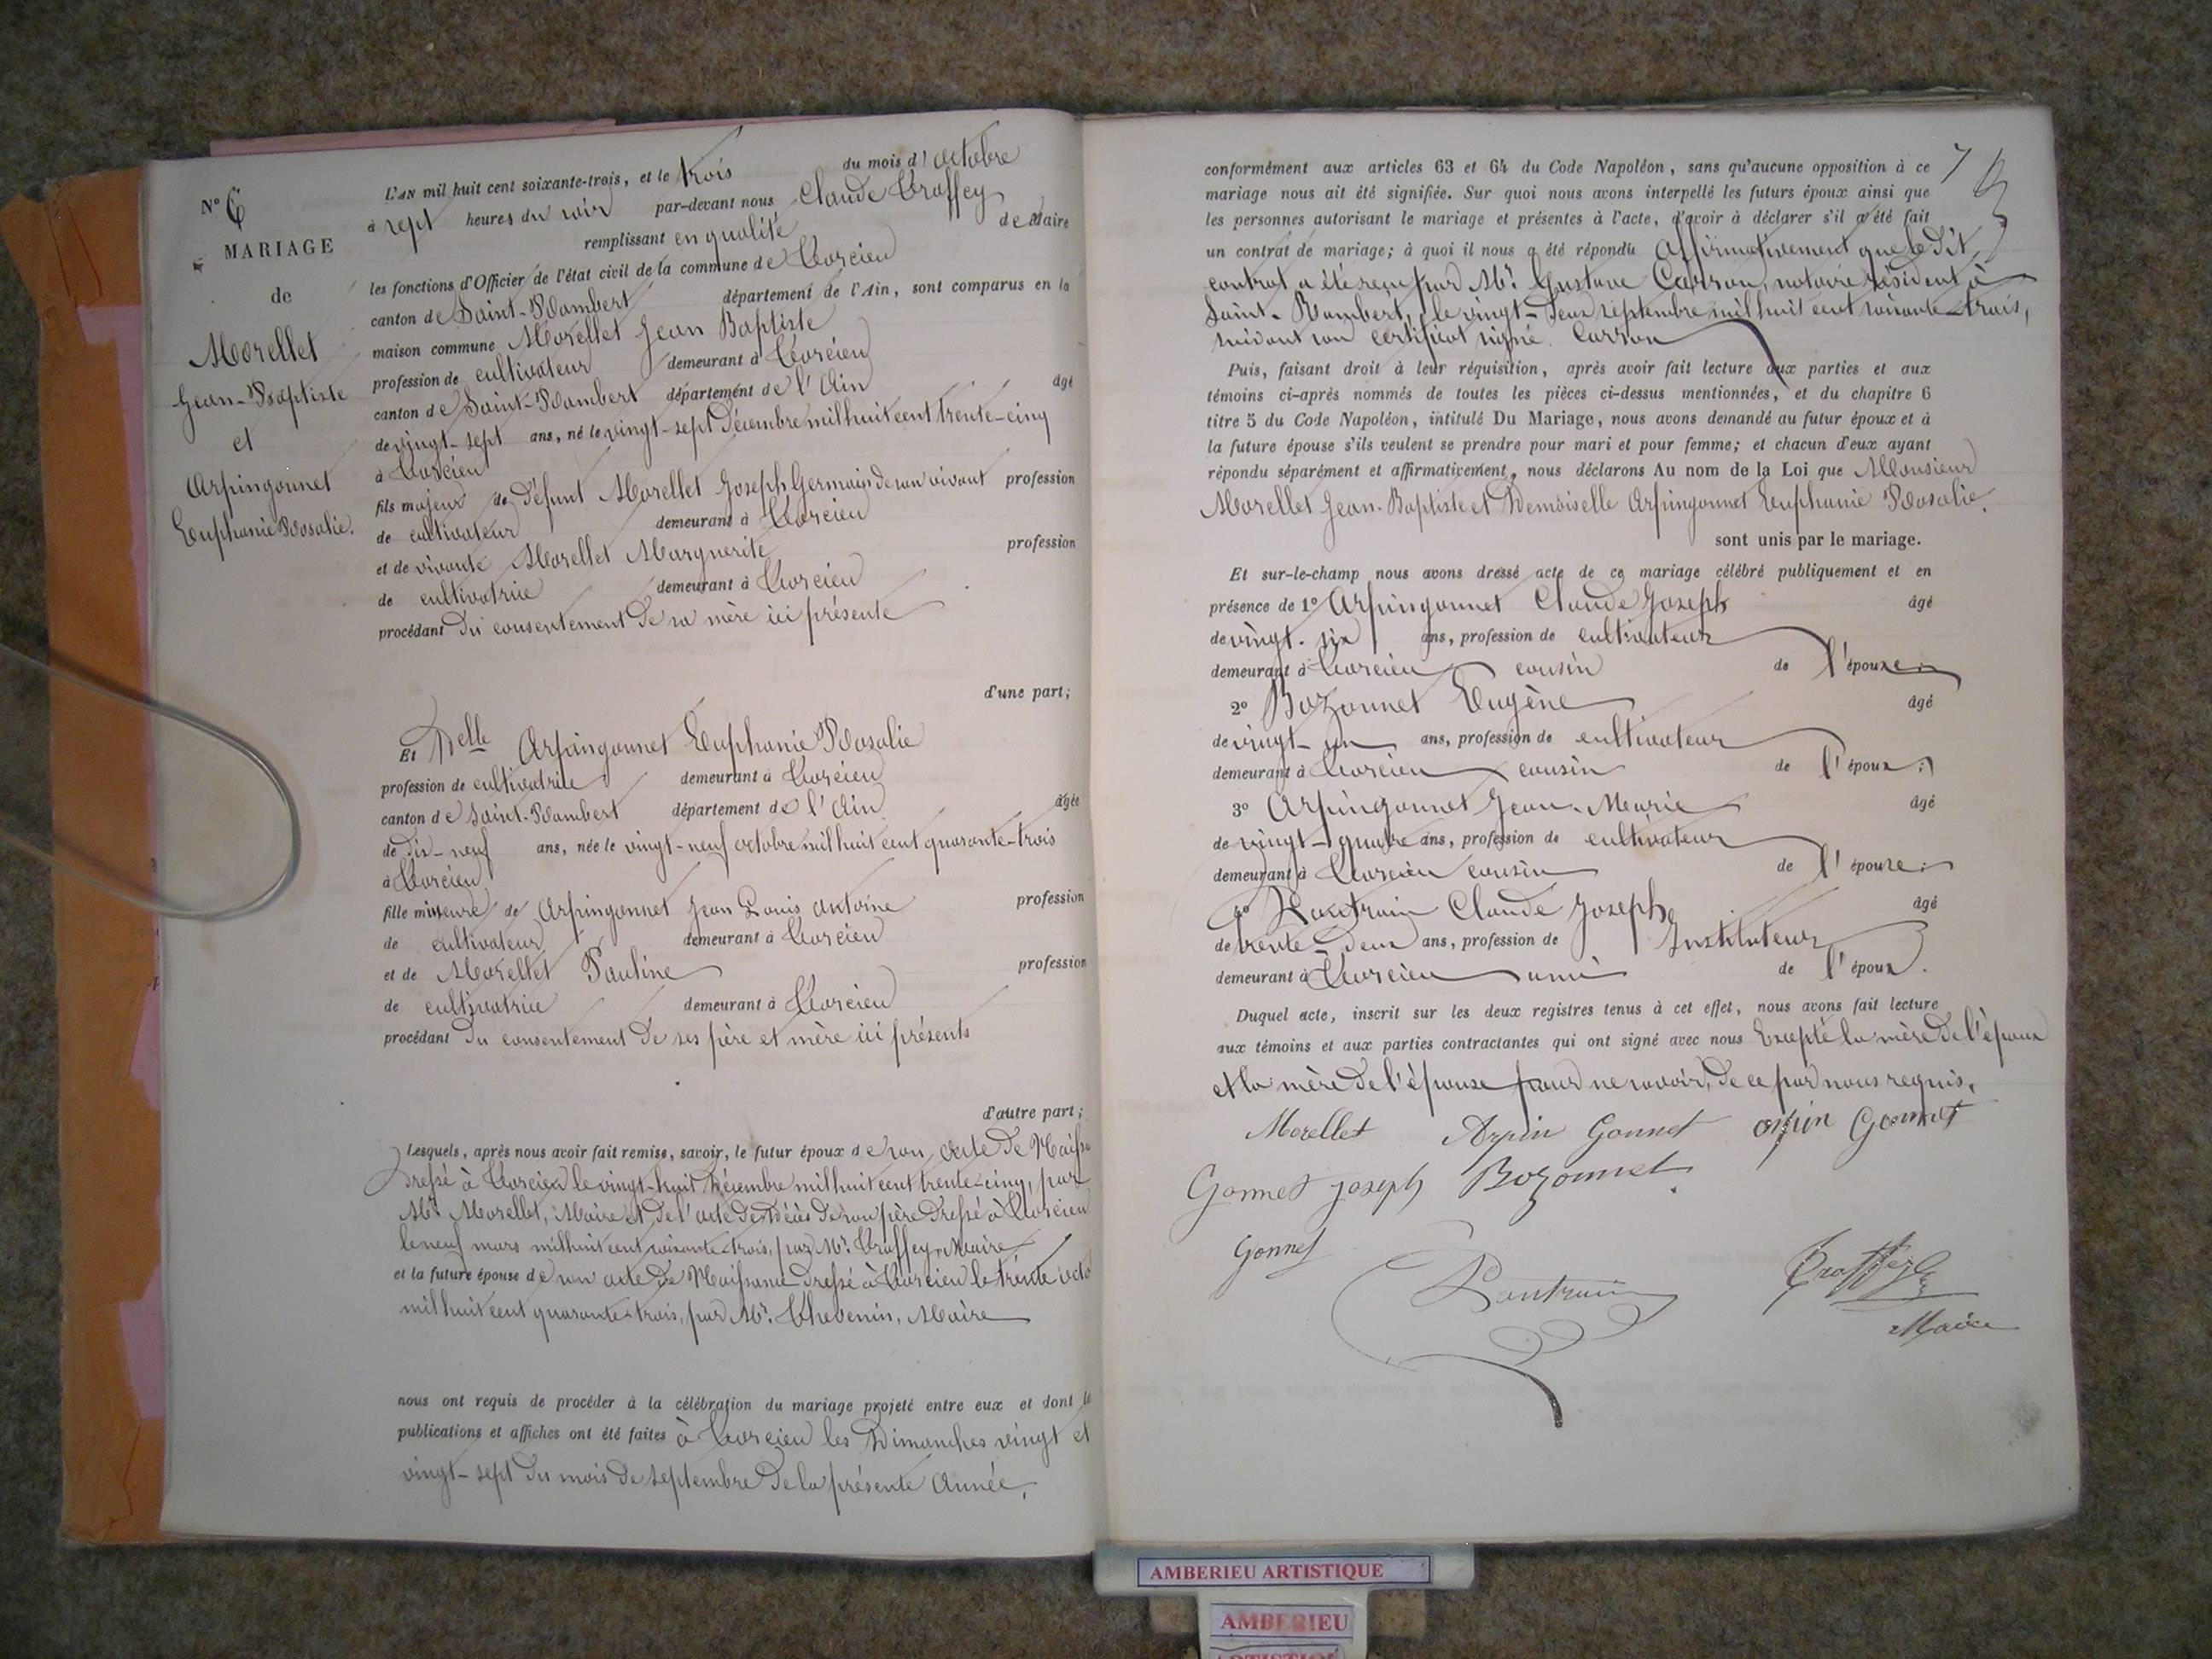 N° 6
MARIAGE
de
Morellet
Jean-Baptiste
et
Arpingonnet
Euphanie Rosalie.
L'AN mil huit cent soixante-trois, et le trois du mois d'octobre
à sept heures du soir par-devant nous Claude Traffey
remplissant en qualité de Maire
les fonctions d'Officier de l'état civil de la commune de Torcieu
canton de Saint-Rambert département de l'Ain, sont comparus en la
maison commune Morellet Jean Baptiste
profession de cultivateur demeurant à Torcieu
canton de Saint-Rambert département de l'Ain âgé
de vingt-sept ans, né le vingt-sept Décembre mil huit cent trente-cinq
à Torcieu
fils majeur de Défunt Morellet Joseph Germain de son vivant profession
de cultivateur demeurant à Torcieu
et de vivante Morellet Marguerite profession
de cultivatrice demeurant à Torcieu
procédant du consentement de sa mère ici présente
d'une part;
Et Delle Arpingonnet Euphanie Rosalie
profession de cultivatrice demeurant à Torcieu
canton de Saint-Rambert département de l'Ain âgée
de dix-neuf ans, née le vingt-neuf octobre mil huit cent quarante-trois
à Torcieu
fille mineure de Arpingonnet Jean Louis Antoine profession
de cultivateur demeurant à Torcieu
et de Morellet Pauline profession
de cultivatrice demeurant à Torcieu
procédant du consentement de ses père et mère ici présents
d'autre part;
Lesquels, après nous avoir fait remise, savoir, le futur époux de son acte de Naiss
dressé à Torcieu le vingt-huit Décembre mil huit cent trente-cinq, par
Mr. Morellet, Maire et de l'acte de Décès de son père dressé à Torcieu
le neuf mars mil huit cent soixante-trois, par Mr. Traffey, Maire
et la future épouse de son acte de Naissance dressé à Torcieu le trente octo
mil huit cent quarante-trois, par Mr. Thevenin, Maire
nous ont requis de procéder à la célébration du mariage projeté entre eux et dont le
publications et affiches ont été faites à Torcieu les Dimanches vingt et
vingt-sept du mois de septembre de la présente Année.
7
conformément aux articles 63 et 64 du Code Napoléon, sans qu'aucune opposition à ce
mariage nous ait été signifiée. Sur quoi nous avons interpellé les futurs époux ainsi que
les personnes autorisant le mariage et présentes à l'acte, d'avoir à déclarer s'il a été fait
un contrat de mariage; à quoi il nous a été répondu Affirmativement que le dit
contrat a été reçu par Mr. Gustave Carron, notaire résident à
Saint-Rambert, le vingt-deux septembre mil huit cent soixante-trois,
suivant son certificat signé. Carron
Puis, faisant droit à leur réquisition, après avoir fait lecture aux parties et aux
témoins ci-après nommés de toutes les pièces ci-dessus mentionnées, et du chapitre 6
titre 5 du Code Napoléon, intitulé Du Mariage, nous avons demandé au futur époux et à
la future épouse s'ils veulent se prendre pour mari et pour femme; et chacun d'eux ayant
répondu séparément et affirmativement, nous déclarons Au nom de la Loi que Monsieur
Morellet Jean-Baptiste et Demoiselle Arpingonnet Euphanie Rosalie.
sont unis par le mariage.
Et sur-le-champ nous avons dressé acte de ce mariage célébré publiquement et en
présence de 1° Arpingonnet Claude Joseph âgé
de vingt-six ans, profession de cultivateur
demeurant à Torcieu cousin de l'épouse;
2° Bozonnet Eugène âgé
de vingt-un ans, profession de cultivateur
demeurant à Torcieu cousin de l'époux;
3° Arpingonnet Jean-Marie âgé
de vingt-quatre ans, profession de cultivateur
demeurant à Torcieu cousin de l'épouse;
4° Lantrain Claude Joseph âgé
de trente-deux ans, profession de Instituteur
demeurant à Torcieu ami de l'époux.
Duquel acte, inscrit sur les deux registres tenus à cet effet, nous avons fait lecture
aux témoins et aux parties contractantes qui ont signé avec nous Excepté la mère de l'époux
et la mère de l'épouse pour ne savoir, de ce par nous requis.
Morellet Arpin Gonnet arpin Gonnet
Gonnet joseph Bozonnet
Gonnet Lantrain Traffey
Maire
AMBERIEU ARTISTIQUE
AMBERIEU
ARTISTIQUE